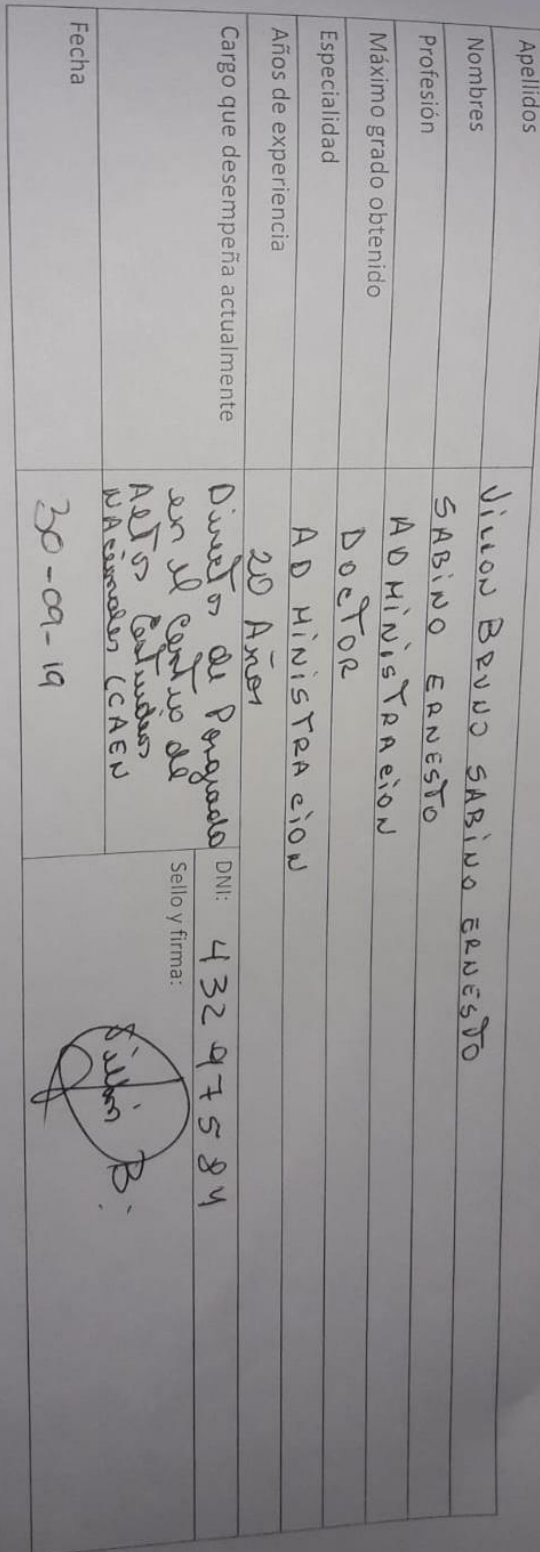 Apellidos VILLON BRUNO SABINO ERNESTO
Nombres SABINO ERNESTO
Profesión ADMINISTRACION
Máximo grado obtenido DOCTOR
Especialidad ADMINISTRACION
Años de experiencia 20 Años
Cargo que desempeña actualmente Director de Posgrado
en el Centro de
Altos Estudios
NAcionales (CAEN
DNI: 43297584
Sello y firma:
Villón B.
Fecha 30-09-19